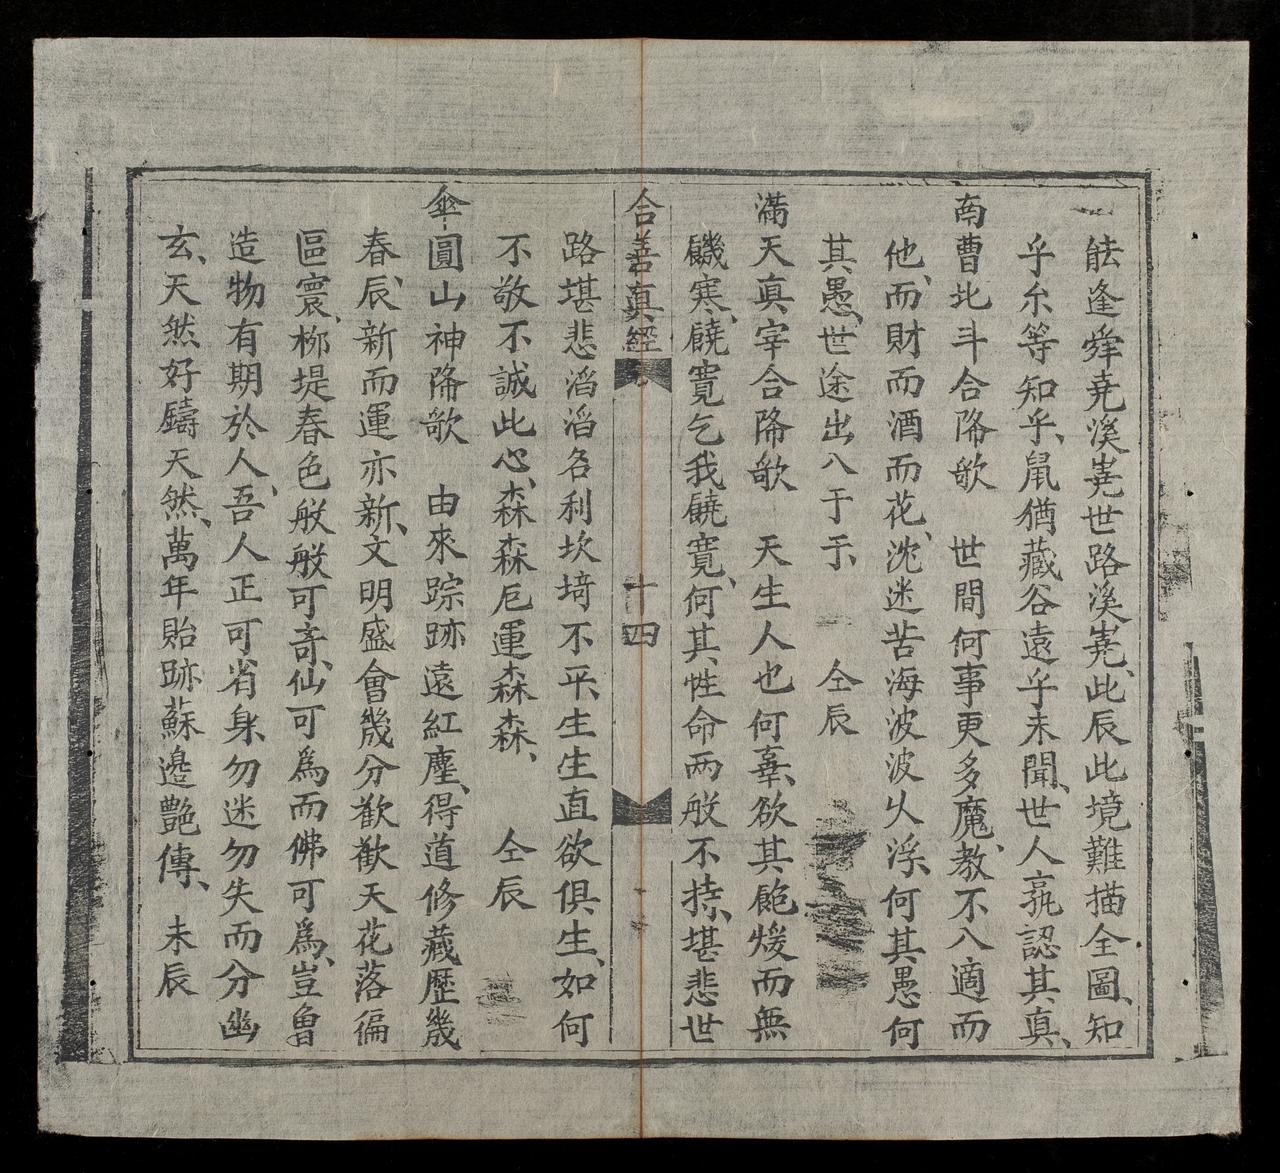 能逢舜堯溪嵬世路溪嵬、此辰此境難描全圖、知
乎尒等知乎、鼠猶藏谷遠乎未聞、世人孰認其真、
南曹北斗合降歌　世間何事更多魔、教不八適而
他、而財而酒而花、沈迷苦海波波乆浮、何其愚何
其愚、世途出八于于、　仝辰
滿天真宰合降歌　天生人也何辜、欲其飽煖而無
饑寒、饒寬乞我饒寬、何其性命兩般不持、堪悲世
合善真經　十四
路堪悲滔滔名利坎埼不平、生生直欲俱生、如何
不敬不誠此心、森森厄運森森、　仝辰
傘圓山神降歌　由來踪跡遠紅塵、得道修藏歷幾
春、辰新而運亦新、文明盛會幾分歡歡天花落徧
區寰、柳堤春色般般可奇、仙可爲而佛可爲、豈曾
造物有期於人、吾人正可省身、勿迷勿失而分幽
玄、天然好鑄天然、萬年貽跡蘇邊艷傳、　未辰